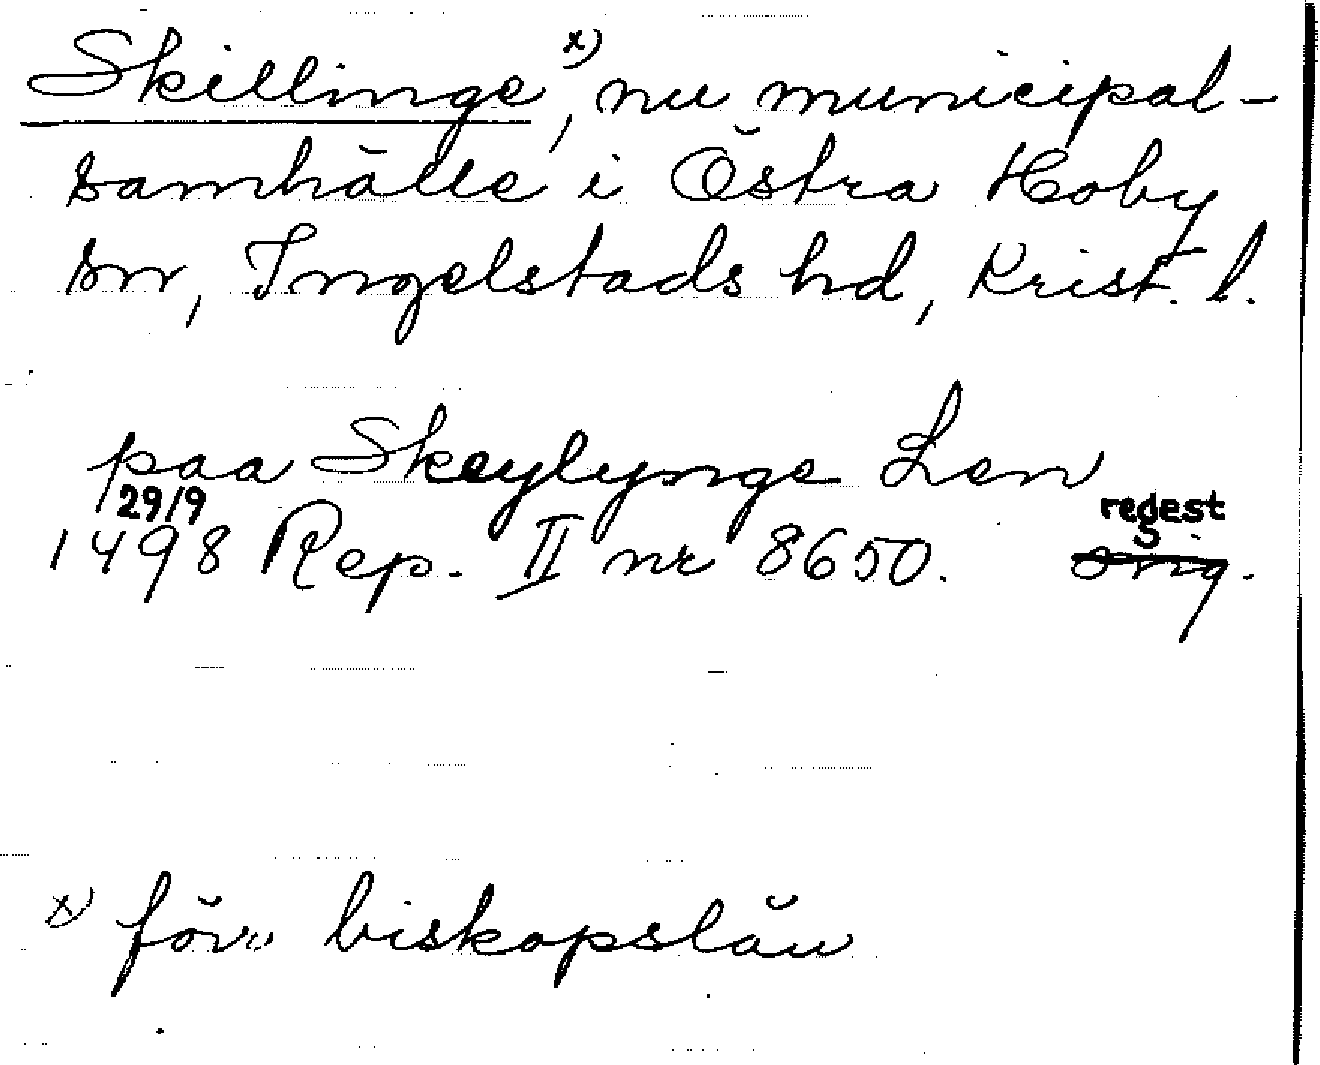 Skillinge x), nu municipal-
samhälle i Östra Hoby
sn, Ingelstads hd, Krist. l.
paa Skeylynge Len
29/9 regest
1498 Rep. II nr 8650. orig.
x) förv. biskopslän